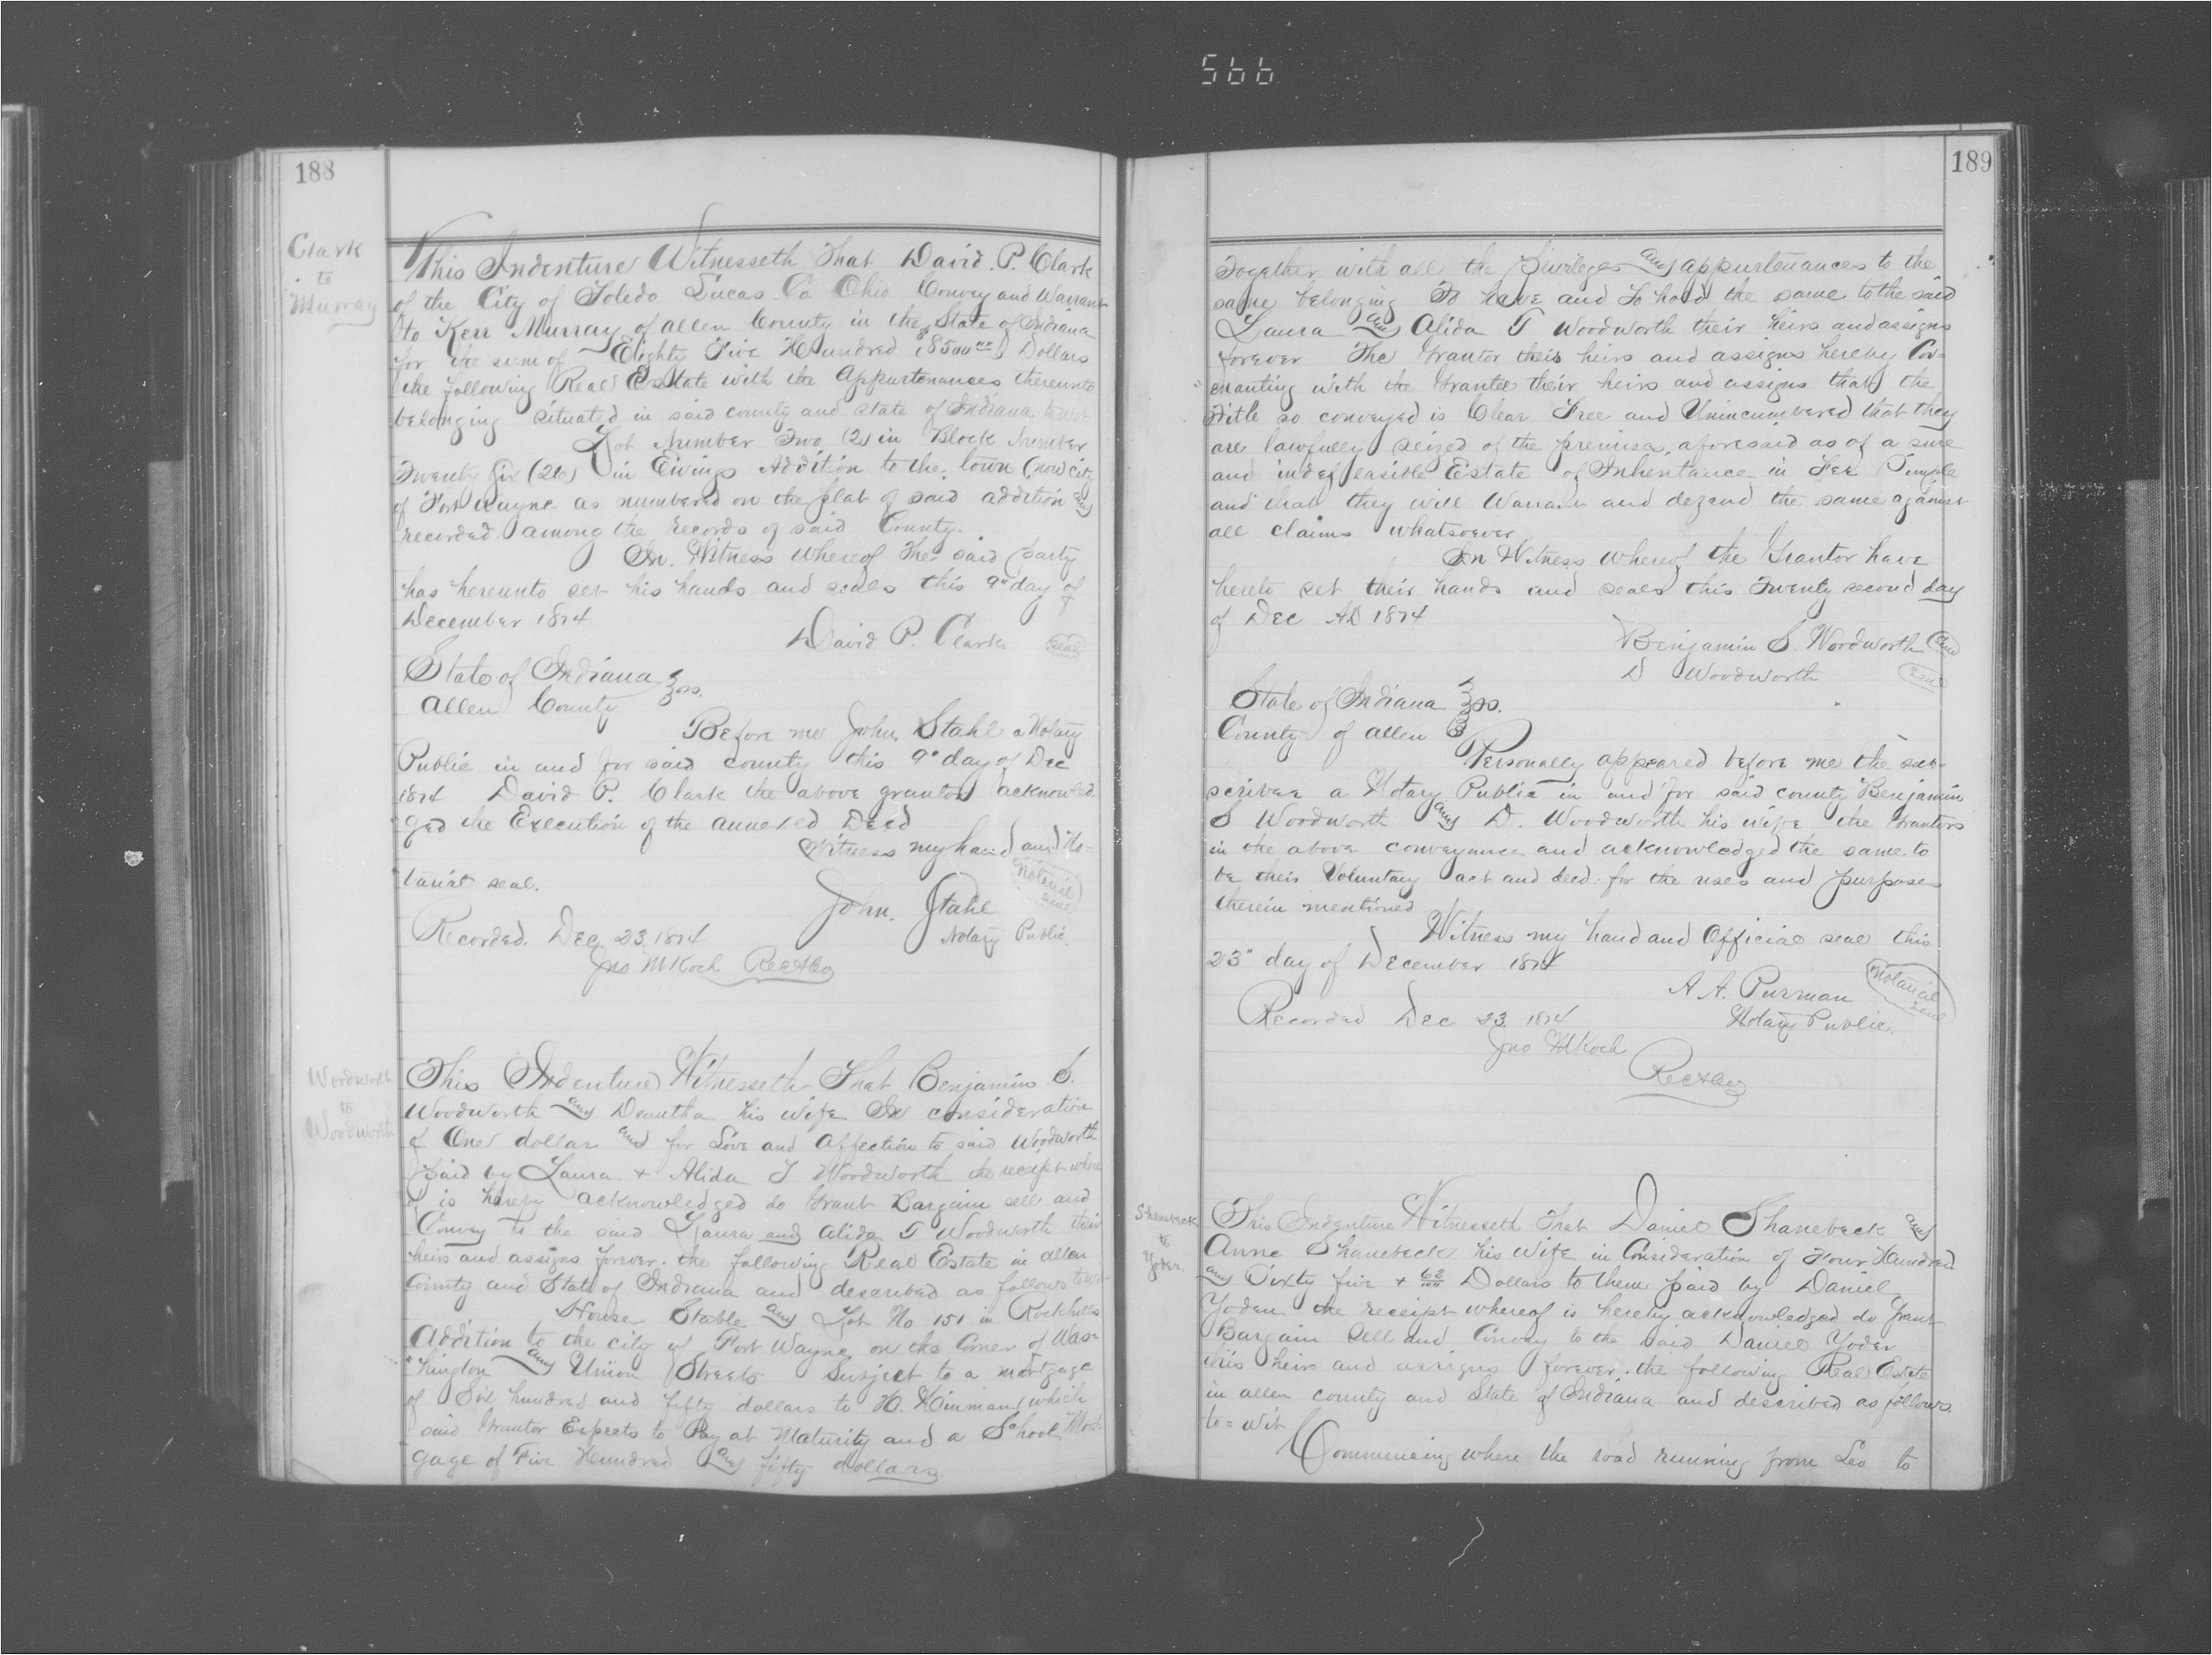 566
188
Clark
to
Murray
This Indenture Witnesseth That David. P. Clark
of the City of Toledo Lucas. Co Ohio Convey and Warrant
to Kerr Murray of Allen County in the State of Indiana
for the sum of Eighty Five Hundred (8500 00) Dollars
the following Real Estate with the Appurtenances thereunto
belonging situated in said county and state of Indiana to wit
Lot Number Two (2) in Block Number
Twenty Six (26) in Ewings Addition to the town (now city
of Fort Wayne as numbered on the plat of said addition and
recorded among the records of said County.
In Witness whereof The said party
has hereunto set his hands and seals this 9" day of
December 1874
David P. Clark (seal)
State of Indiana } ss.
Allen County
Before me John Stahl a Notary
Public in and for said county this 9" day of Dec
1874 David P. Clark the above grantor acknowled-
ged the Execution of the annexed Deed
Witness my hand and No-
tarial seal.
John. Stahl (Notarial seal)
Notary Public.
Recorded. Dec. 23. 1874
Jno M Koch Rec A Co
Woodworth
to
Woodworth
This Indenture Witnesseth That Benjamin S.
Woodworth and Deautha his wife In consideration
of One dollar and for Love and Affection to said Woodworth
paid by Laura + Alida T Woodworth the receipt where
is hereby acknowledged do Grant Bargain sell and
Convey to the said Laura and Alida T Woodworth their
heirs and assigns forever. the following Real Estate in Allen
County and State of Indiana and described as follows to wit
House Stable and Lot No 151 in Rockhills
Addition to the city of Fort Wayne on the Corner of Was-
hington and Union Streets Subject to a mortgage
of Six hundred and fifty dollars to H. Hinman which
said Grantor Expects to Pay at Maturity and a School Mort-
gage of Five Hundred and fifty dollars
189
Together with all the Privileges and appurtenances to the
same belonging To have and To hold the same to the said
Laura and Alida T Woodworth their heirs and assigns
forever The Grantor their heirs and assigns hereby Cov-
enanting with the Grantee their heirs and assigns that the
Title so conveyed is Clear Free and Unincumbered that they
are lawfully seized of the premises, aforesaid as of a sure
and indefeasible Estate of Inheritance in Fee Simple
and that they will Warrant and defend the same against
all claims whatsoever
In Witness whereof the Grantor have
hereto set their hands and seals this Twenty second day
of Dec AD 1874
Benjamin S. Woodworth (seal)
D Woodworth (seal)
State of Indiana } ss.
County of Allen
Personally appeared before me the sub-
scriber a Notary Public in and for said county Benjamin
S Woodworth and D. Woodworth his wife the Grantors
in the above conveyance and acknowledged the same to
be their Voluntary act and deed for the uses and purposes
therein mentioned
Witness my hand and Official seal this
23" day of December 1874
A A. Purman (Notarial seal)
Notary Public.
Recorded Dec 23. 1874
Jno M Koch
Rec A Co
Shanebeck
to
Yoder.
This Indenture Witnesseth That Daniel Shanebeck and
Anne Shanebeck his wife in Consideration of Four Hundred
and Sixty five + 62/100 Dollars to them paid by Daniel
Yoder the receipt whereof is hereby acknowledged do Grant
Bargain Sell and Convey to the said Daniel Yoder
his heirs and assigns forever. the following Real Estate
in Allen county and State of Indiana and described as follows.
to=wit
Commencing where the road running from Leo to